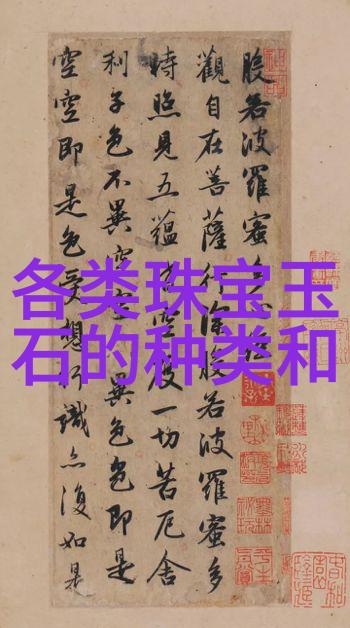 各类珠宝玉
石的种类和
般若波羅蜜多心經
觀自在菩薩行深般若波羅蜜多
時照見五蘊皆空度一切苦厄舍
利子色不異空空不異色色即是
空空即是色受想行識亦復如是